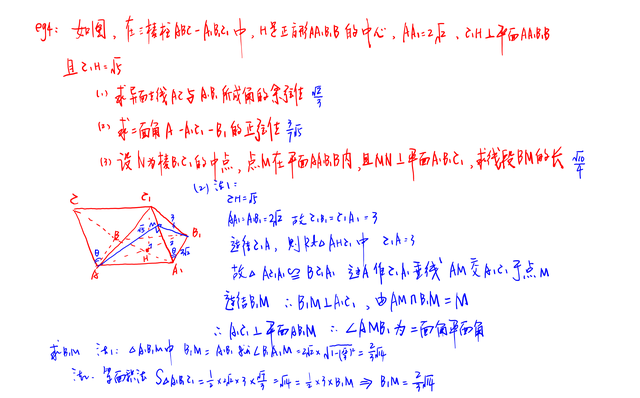 eg4: 如图, 在三棱柱ABC-A₁B₁C₁中, H是正方形AA₁B₁B的中心, AA₁=2√2, C₁H⊥平面AA₁B₁B
且C₁H=√5
(1) 求异面直线AC与A₁B₁所成角的余弦值 √2/3
(2) 求二面角A-A₁C₁-B₁的正弦值 3/7√5
(3) 设N为棱B₁C₁的中点, 点M在平面AA₁B₁B内, 且MN⊥平面A₁B₁C₁, 求线段BM的长 √10/4
(2) 法1:
C₁H=√5
AA₁=A₁B₁=2√2 故C₁B₁=C₁A₁=3
连接C₁A, 则Rt△AHC₁中 C₁A=3
故△AC₁A₁≌B₁C₁A₁ 过A作C₁A₁垂线AM交A₁C₁于点M
连结B₁M ∴B₁M⊥A₁C₁, 由AM∩B₁M=M
∴A₁C₁⊥平面AB₁M ∴∠AMB₁为二面角平面角
C C₁ B M B₁ H A A₁ √5 3 2 2√2 θ θ
求B₁M 法1: △A₁B₁M中 B₁M=A₁B₁ sin∠B₁A₁M=2√2×√(1-(√2/3)²)=2/3√14
法2. 等面积法 S△A₁B₁C₁=1/2×2√2×3×√7/3=√14=1/2×3×B₁M ⇒ B₁M=2/3√14